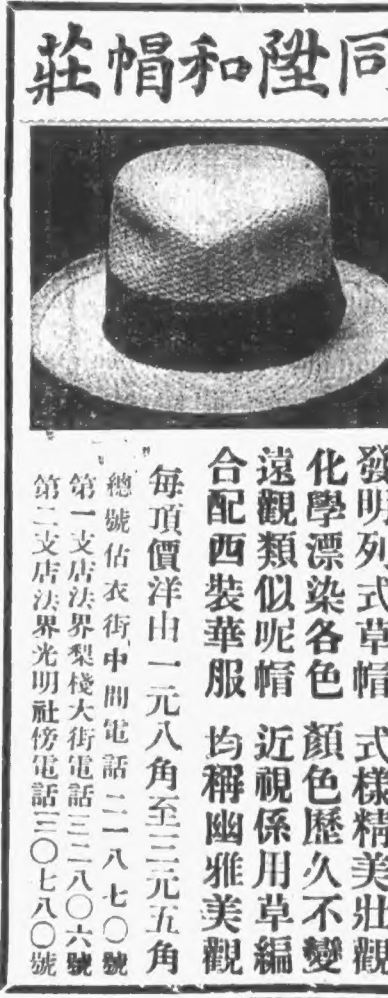 同陞和帽莊
發明列式草帽 式樣精美壯觀
化學漂染各色 顏色歷久不變
遠觀類似呢帽 近視係用草編
合配西裝華服 均稱幽雅美觀
每頂價洋由一元八角至三元五角
總號估衣街中間電話二一八七〇號
第一支店法界梨棧大街電話三二八〇六號
第二支店法界光明社傍電話三〇七八〇號